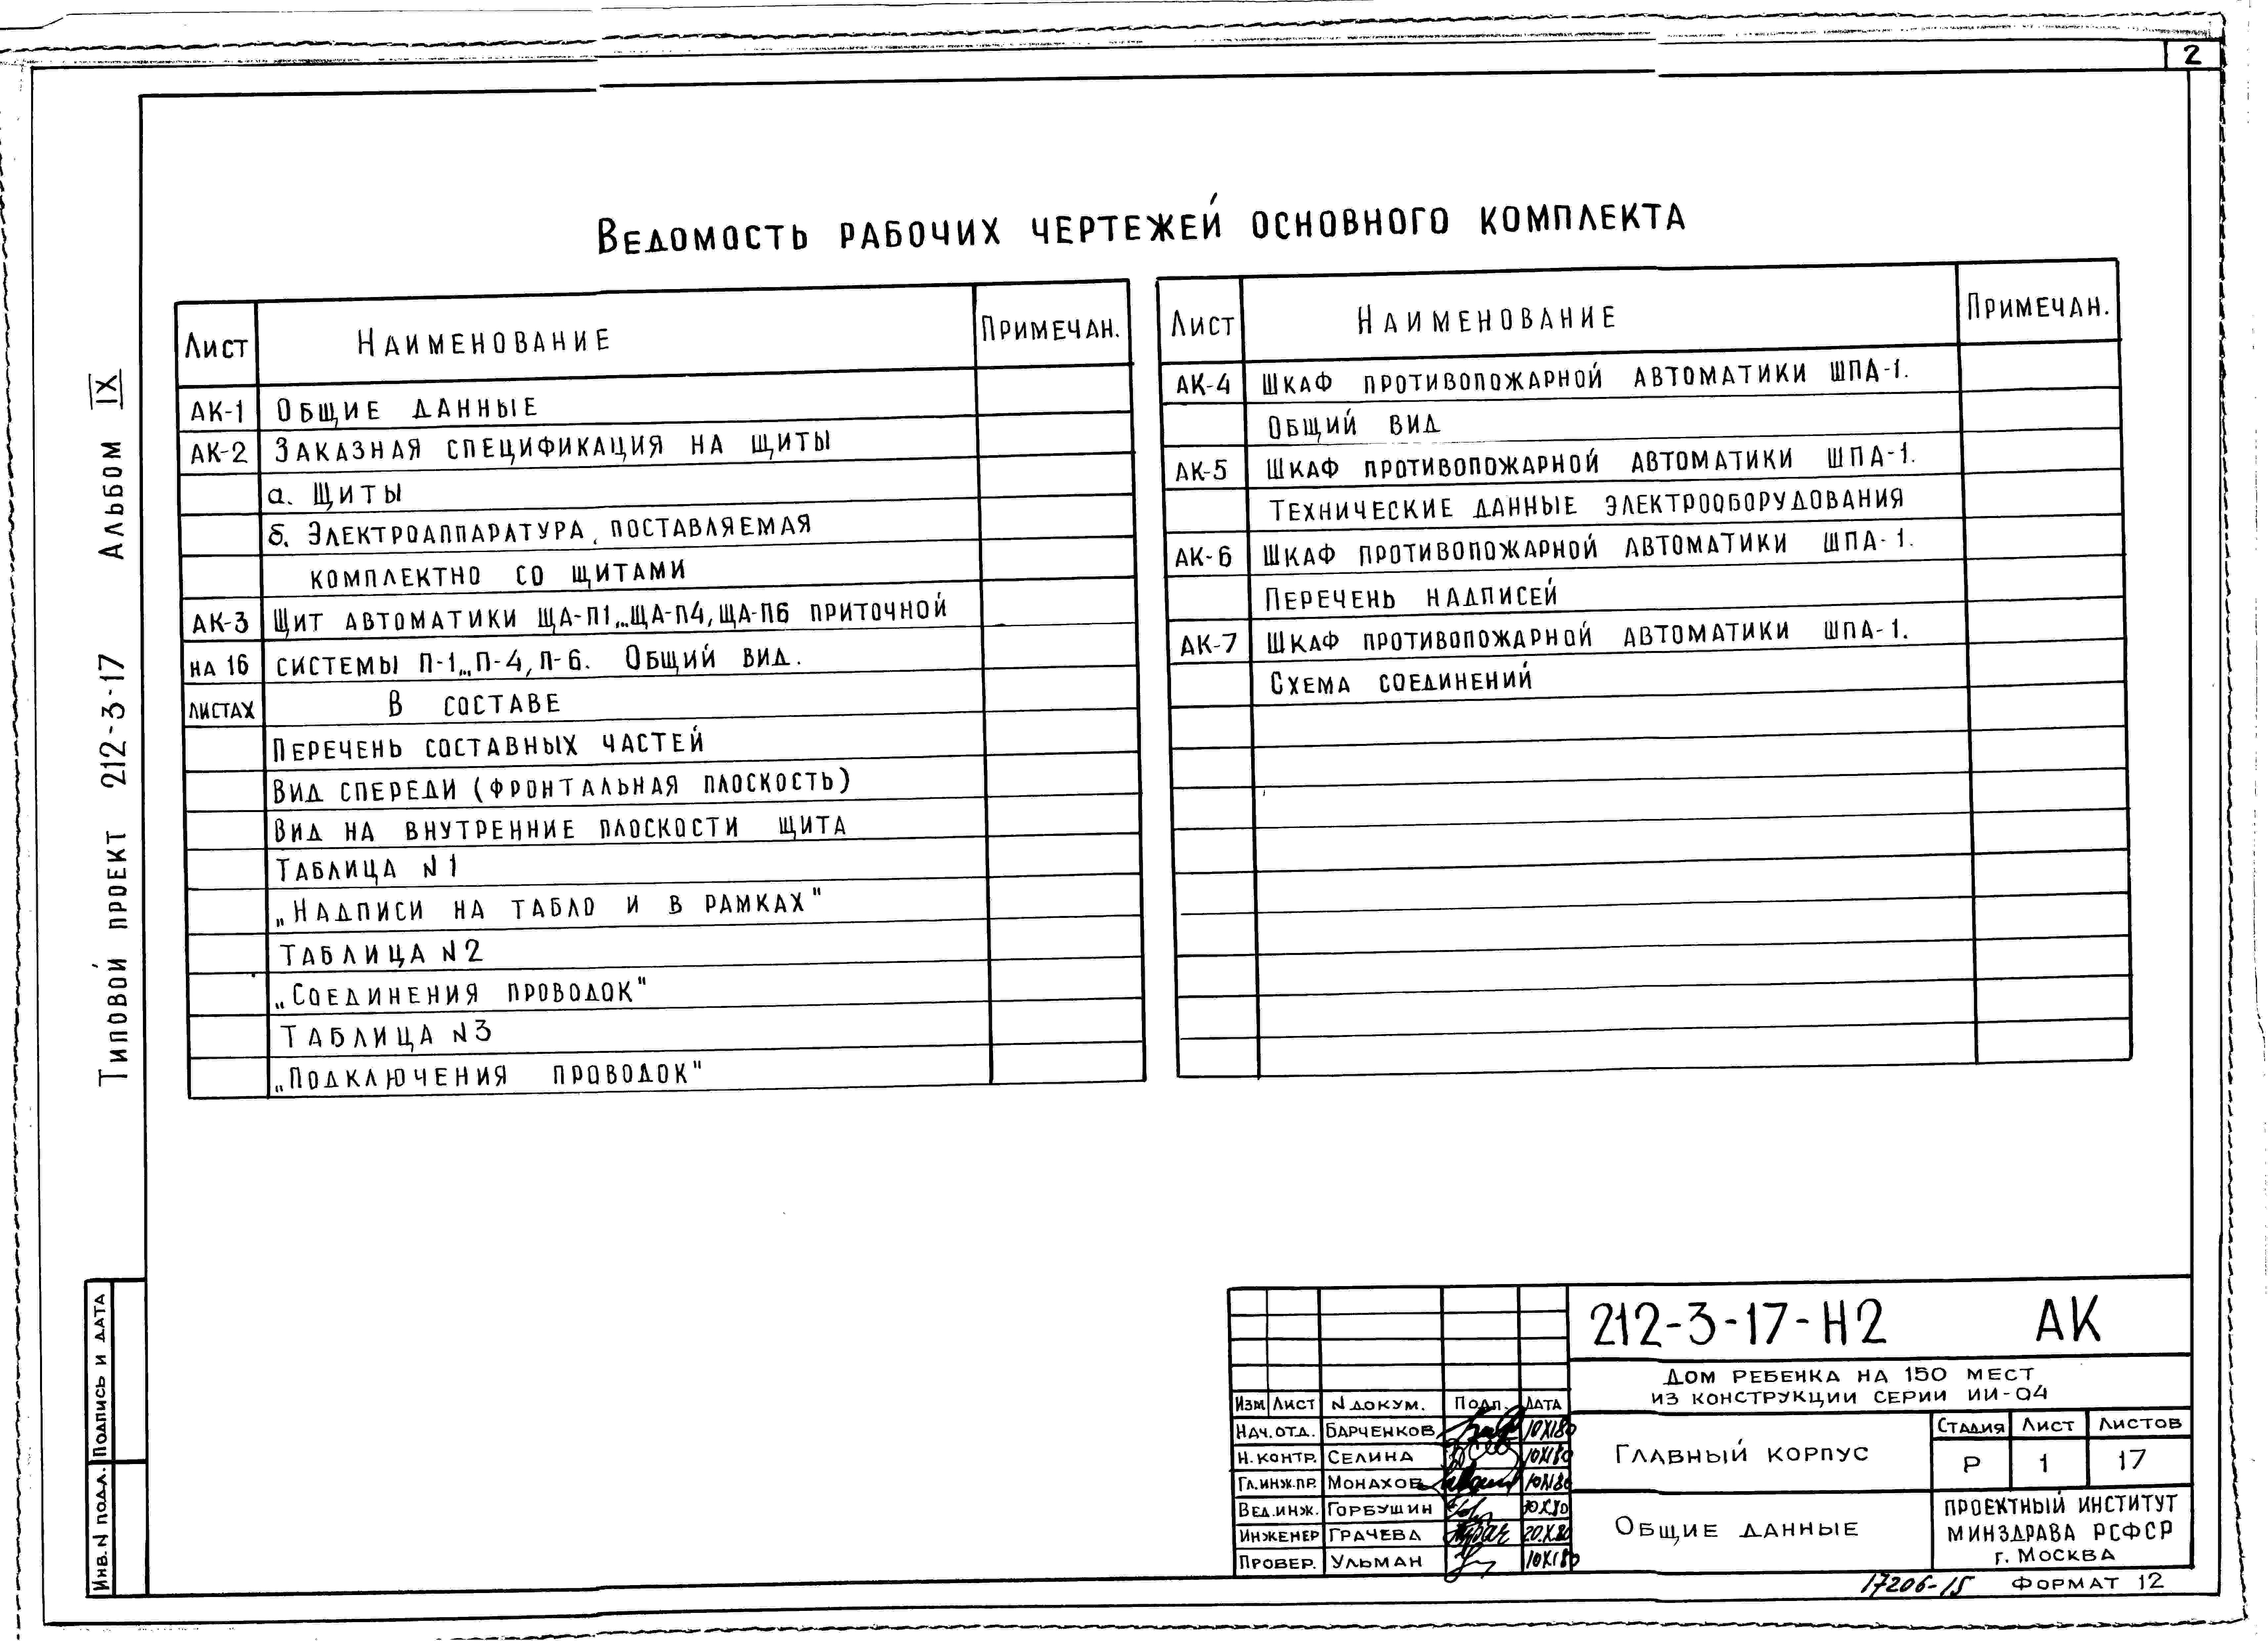 2
Ведомость рабочих чертежей основного комплекта
Лист Наименование Примечан.
АК-1 Общие данные
АК-2 Заказная спецификация на щиты
а. Щиты
б. Электроаппаратура, поставляемая
комплектно со щитами
АК-3 Щит автоматики ЩА-П1...ЩА-П4, ЩА-П6 приточной
на 16 системы П-1...П-4, П-6. Общий вид.
листах В составе
Перечень составных частей
Вид спереди (фронтальная плоскость)
Вид на внутренние плоскости щита
Таблица N1
„Надписи на табло и в рамках"
Таблица N2
„Соединения проводок"
Таблица N3
„Подключения проводок"
Лист Наименование Примечан.
АК-4 Шкаф противопожарной автоматики ШПА-1.
Общий вид
АК-5 Шкаф противопожарной автоматики ШПА-1.
Технические данные электрооборудования
АК-6 Шкаф противопожарной автоматики ШПА-1.
Перечень надписей
АК-7 Шкаф противопожарной автоматики ШПА-1.
Схема соединений
Типовой проект 212-3-17 Альбом IX
Инв. N подл. Подпись и дата
212-3-17-Н2 АК
Дом ребенка на 150 мест
из конструкции серии ИИ-04
Изм Лист N докум. Подп. Дата
Нач. отд. Барченков 10XI80
Н. контр. Селина 10XI80
Гл. инж. пр. Монахов 10XI80
Вед. инж. Горбушин
Инженер Грачева 20.X.80
Провер. Ульман 10XI80
Главный корпус
Стадия Лист Листов
Р 1 17
Общие данные
Проектный институт
Минздрава РСФСР
г. Москва
17206-15 Формат 12